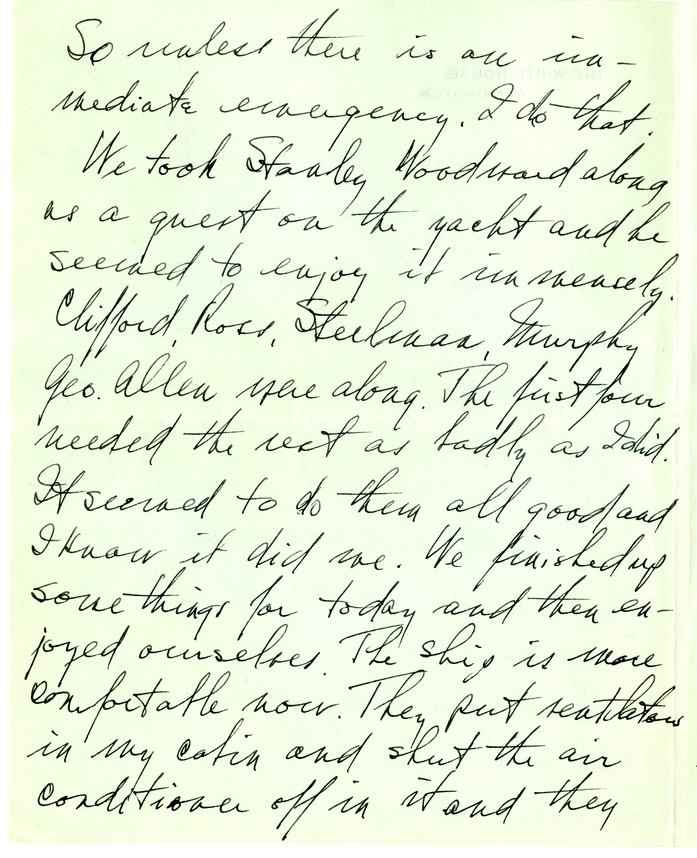 So unless there is an im-
mediate emergency. I do that.
We took Stanley Woodward along
as a guest on the yacht and he
seemed to enjoy it immensely.
Clifford, Ross, Steelman, Murphy
Geo. Allen were along. The first four
needed the rest as badly as I did.
It seemed to do them all good and
I know it did me. We finished up
some things for today and then en-
joyed ourselves. The ship is more
comfortable now. They put ventilators
in my cabin and shut the air
conditioner off in it and they